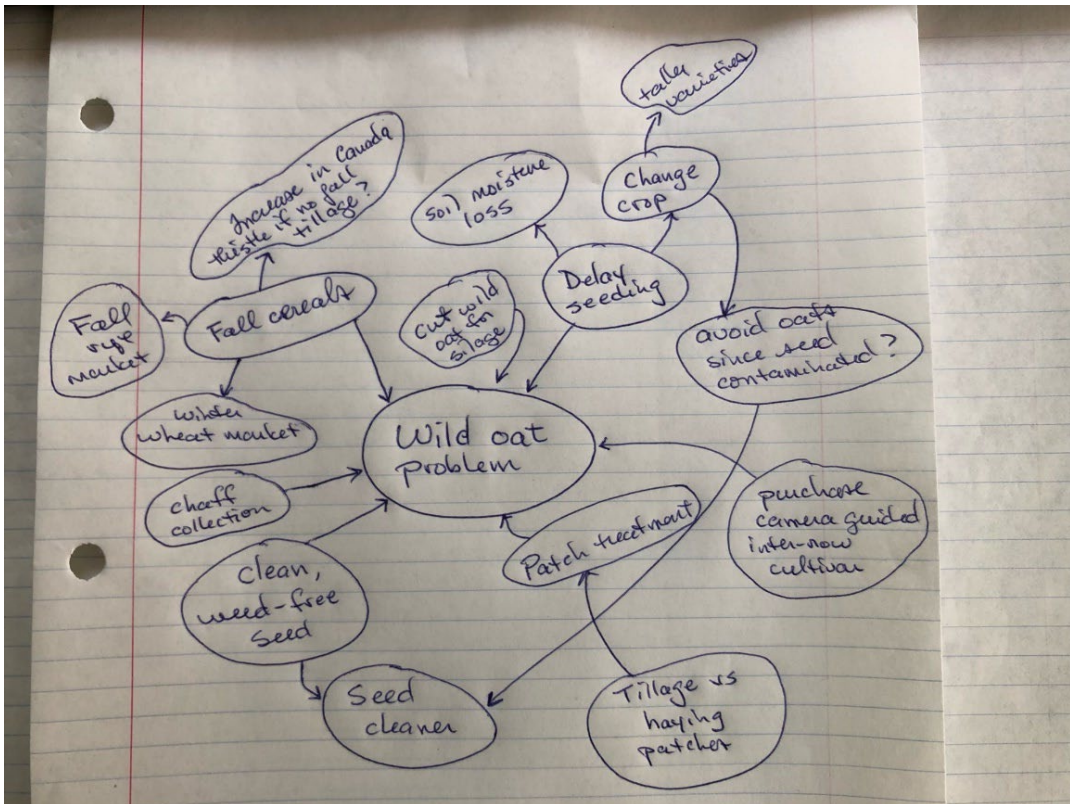 taller
varieties
Increase in Canada
thistle if no fall
tillage?
soil moisture
loss
Change
crop
Delay
seeding
Fall cereals
cut wild
oat for
silage
Fall
rye
market
avoid oats
since seed
contaminated?
winter
wheat market
Wild oat
problem
chaff
collection
purchase
camera guided
inter-row
cultivar
Patch treatment
Clean,
weed-free
seed
Seed
cleaner
Tillage vs
haying
patches